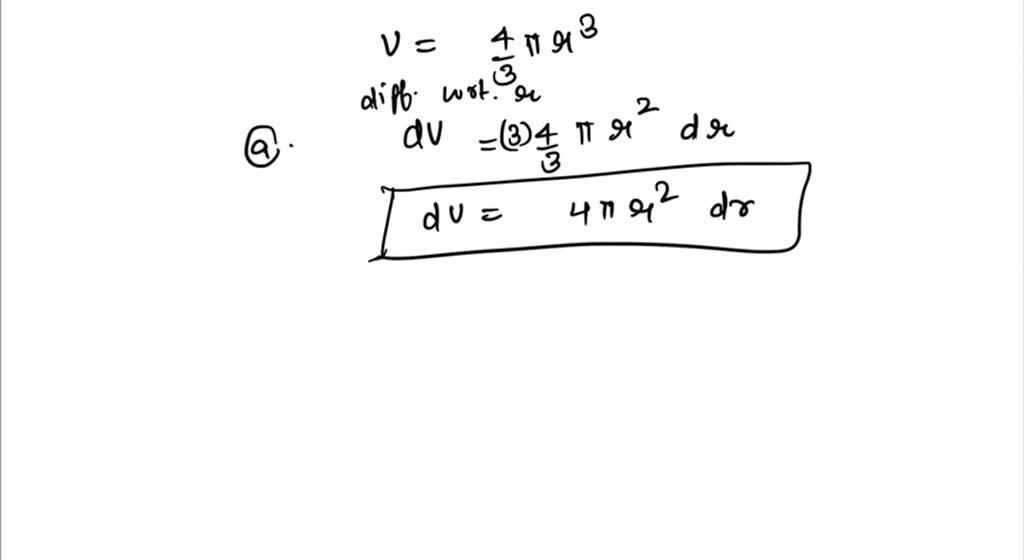 V = 4/3 π r³
diff. wrt. r
(a). dV = (3) 4/3 π r² dr
dV = 4 π r² dr